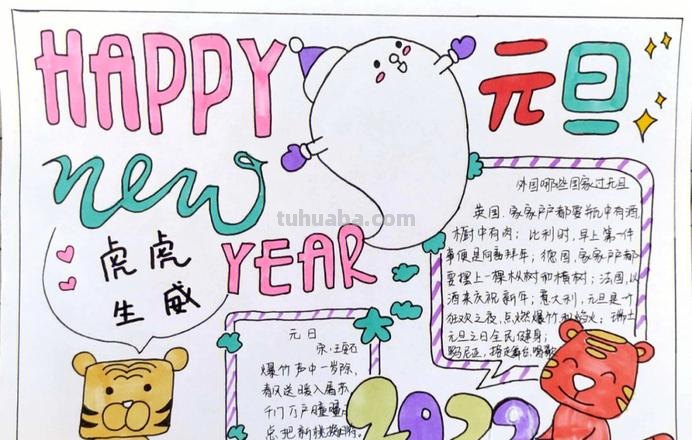 HAPPY
元旦
new
YEAR
tuhuaba.com
虎虎
生威
外国哪些国家过元旦
英国,家家户户都要瓶中有酒,
橱中有肉;比利时,早上第一件
事便是向畜拜年;德国,家家户户都
要摆上一棵枞树和横树;法国,以
酒来庆祝新年;意大利,元旦是个
狂欢之夜,点燃爆竹和焰火;瑞士
元旦之日全民健身;
元日
宋·王安石
爆竹声中一岁除,
春风送暖入屠苏
千门万户曈曈
总把新桃换旧符。
2022